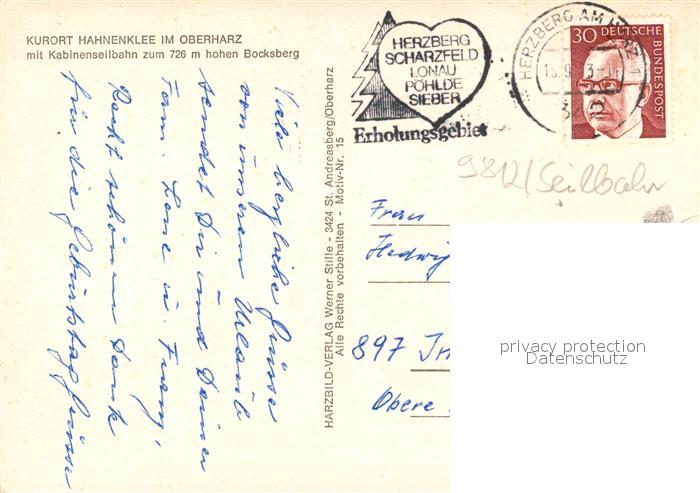 KURORT HAHNENKLEE IM OBERHARZ
mit Kabinenseilbahn zum 726 m hohen Bocksberg
HERZBERG
SCHARZFELD
LONAU
PÖHLDE
SIEBER
Erholungsgebiet
HERZBERG AM
30 DEUTSCHE
BUNDESPOST
9812/Seilbahn
Viele herzliche Grüsse
von unserem Urlaub
sendet Dir und Deiner
Fam. Lene u. Franz!
Recht schönen Dank
für die Geburtstagsgrüsse
HARZBILD-VERLAG Werner Stille - 3424 St. Andreasberg/Oberharz
Alle Rechte vorbehalten - Motiv-Nr. 15
Frau
Hedwig
897
Obere
privacy protection
Datenschutz